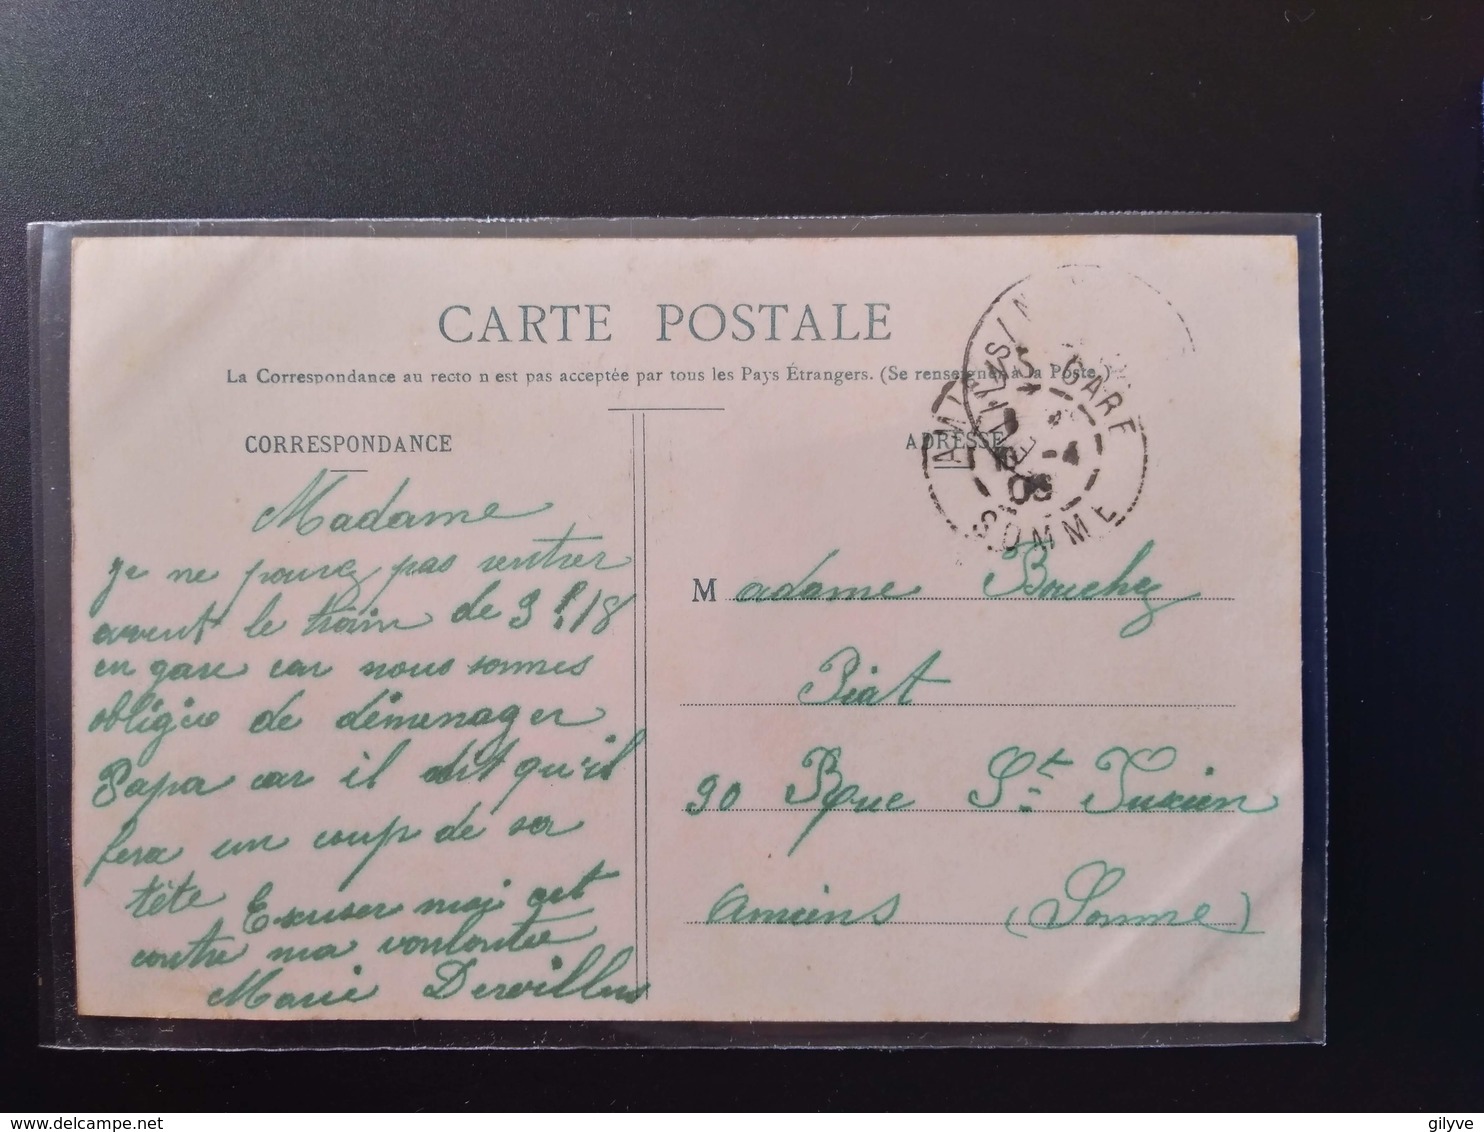 CARTE POSTALE
La Correspondance au recto n'est pas acceptée par tous les Pays Étrangers. (Se renseigner à la Poste.)
CORRESPONDANCE
Madame
je ne pourez pas rentrer
avent le train de 3 h 18
en gare car nous sommes
obligée de démenager
Papa car il dit qu'il
fera un coup de sa
tête Excuser moi cet
contre ma vonlontée
Marie
ADRESSE
AMIENS GARE
-4
09
SOMME
Madame Bouchez
Piat
90 Rue St
Amiens (Somme)
gilyve